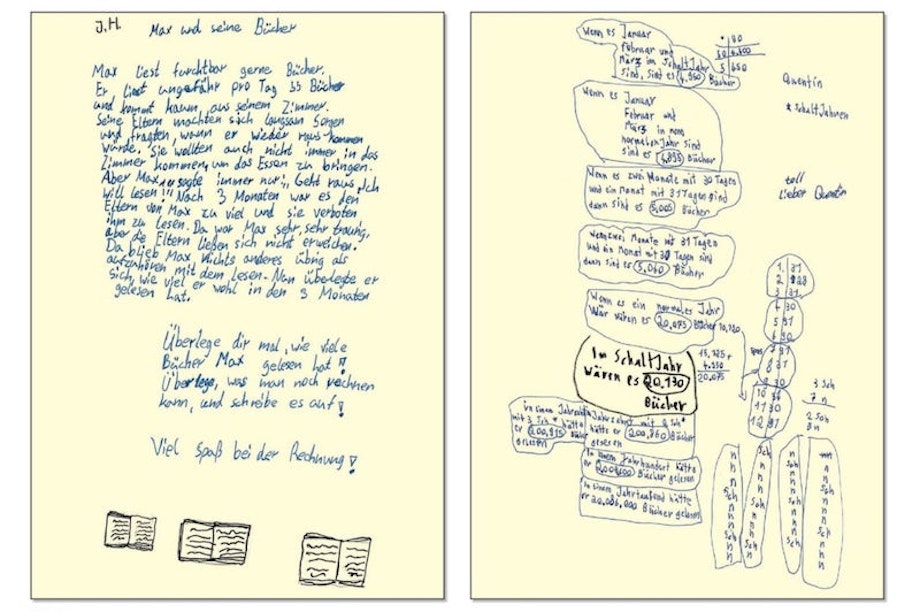 J.H. Max und seine Bücher
Max liest furchtbar gerne Bücher.
Er liest ungefähr pro Tag 55 Bücher
und kommt kaum aus seinem Zimmer.
Seine Eltern machten sich langsam Sorgen
und fragten, wann er wieder raus kommen
würde. Sie wollten auch nicht immer in das
Zimmer kommen, um das Essen zu bringen.
Aber Max sagte immer nur: „Geht raus, Ich
will lesen!" Nach 3 Monaten war es den
Eltern von Max zu viel und sie verboten
ihm zu lesen. Da war Max sehr, sehr traurig,
aber die Eltern ließen sich nicht erweichen.
Da blieb Max nichts anderes übrig als
aufzuhören mit dem Lesen. Nun überlegte er
sich, wie viel er wohl in den 3 Monaten
gelesen hat.
Überlege dir mal, wie viele
Bücher Max gelesen hat!
Überlege, was man noch rechnen
kann, und schreibe es auf!
Viel Spaß bei der Rechnung!
Wenn es Januar
Februar und
März im Schaltjahr
sind, sind es 4.950 Bücher
Quentin
* Schaltjahren
Wenn es Januar
Februar und
März in nem
normalen Jahr sind
sind es 4.895 Bücher
toll
lieber Quentin
Wenn es zwei Monate mit 30 Tagen
und ein Monat mit 31 Tagen sind
dann sind es 5.005 Bücher
wenn zwei Monate mit 31 Tagen
und ein Monat mit 30 Tagen sind
dann sind es 5.060 Bücher
Wenn es ein normales Jahr
wär wären es 20.075 Bücher
Im Schaltjahr
wären es 20.130
Bücher
15.125 +
4.950
20.075
in einem Jahrzehnt
mit 3 Sch * hätte
er 200.915 Bücher
gelesen
Jahrzehnt mit 2 Sch *
hätte er 200.860 Bücher
gelesen
In einem Jahrhundert hätte
er 2.008.600 Bücher gelesen
in einem Jahrtausend hätte
er 20.086.000 Bücher gelesen
1. 31
3 31
4 30
5 31
6 30
7 31
10 31
11 30
12 31
3 Sch
7 n
2 Sch
8 n